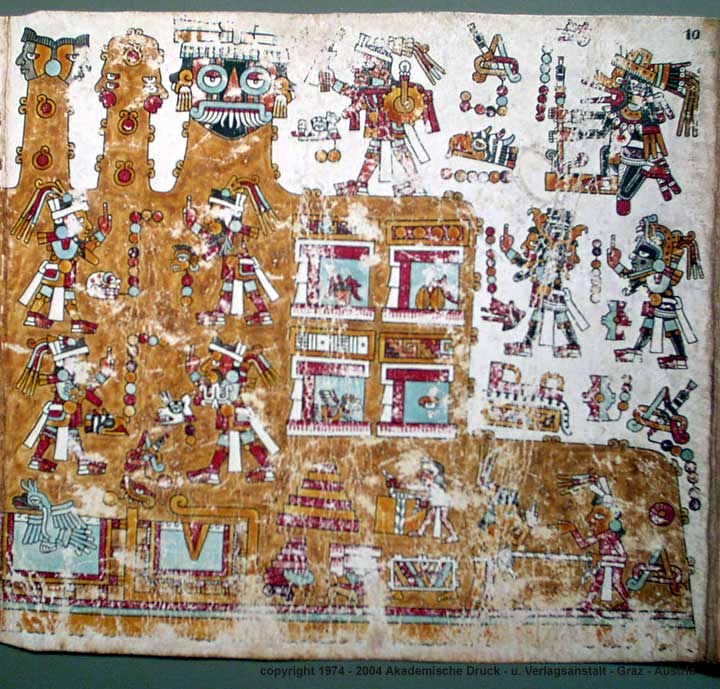 10
copyright 1974 - 2004 Akademische Druck - u. Verlagsanstalt - Graz - Austria